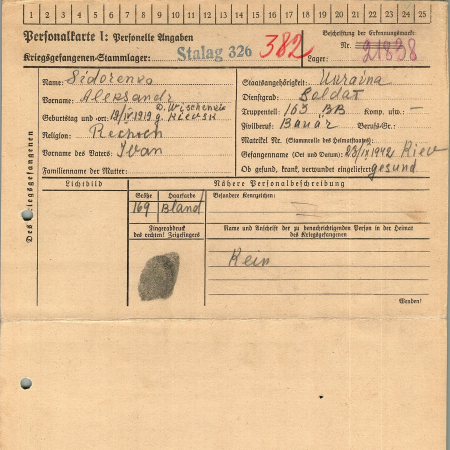 1 2 3 4 5 6 7 8 9 10 11 12 13 14 15 16 17 18 19 20 21 22 23 24 25
Personalkarte I: Personelle Angaben
Beschriftung der Erkennungsmarke
Kriegsgefangenen-Stammlager: Stalag 326 382
Nr. 21838
Lager:
Des Kriegsgefangenen
Name: Sidorenko
Staatsangehörigkeit: Ukraina
Vorname: Aleksandr
Dienstgrad: Soldat
Geburtstag und -ort: 1919 g. Kiewsk
Truppenteil: 163 BB Komp. usw.: —
Religion:
Zivilberuf: Bauär Berufs-Gr.:
Vorname des Vaters: Ivan
Matrikel Nr. (Stammrolle des Heimatstaates):
Gefangennahme (Ort und Datum): 1942 Kiev
Familienname der Mutter:
Ob gesund, krank, verwundet eingeliefert: gesund
Lichtbild
Nähere Personalbeschreibung
Größe Haarfarbe Besondere Kennzeichen:
169 Bland
Fingerabdruck des rechten! Zeigefingers
Name und Anschrift der zu benachrichtigenden Person in der Heimat des Kriegsgefangenen
Kein
Wenden!